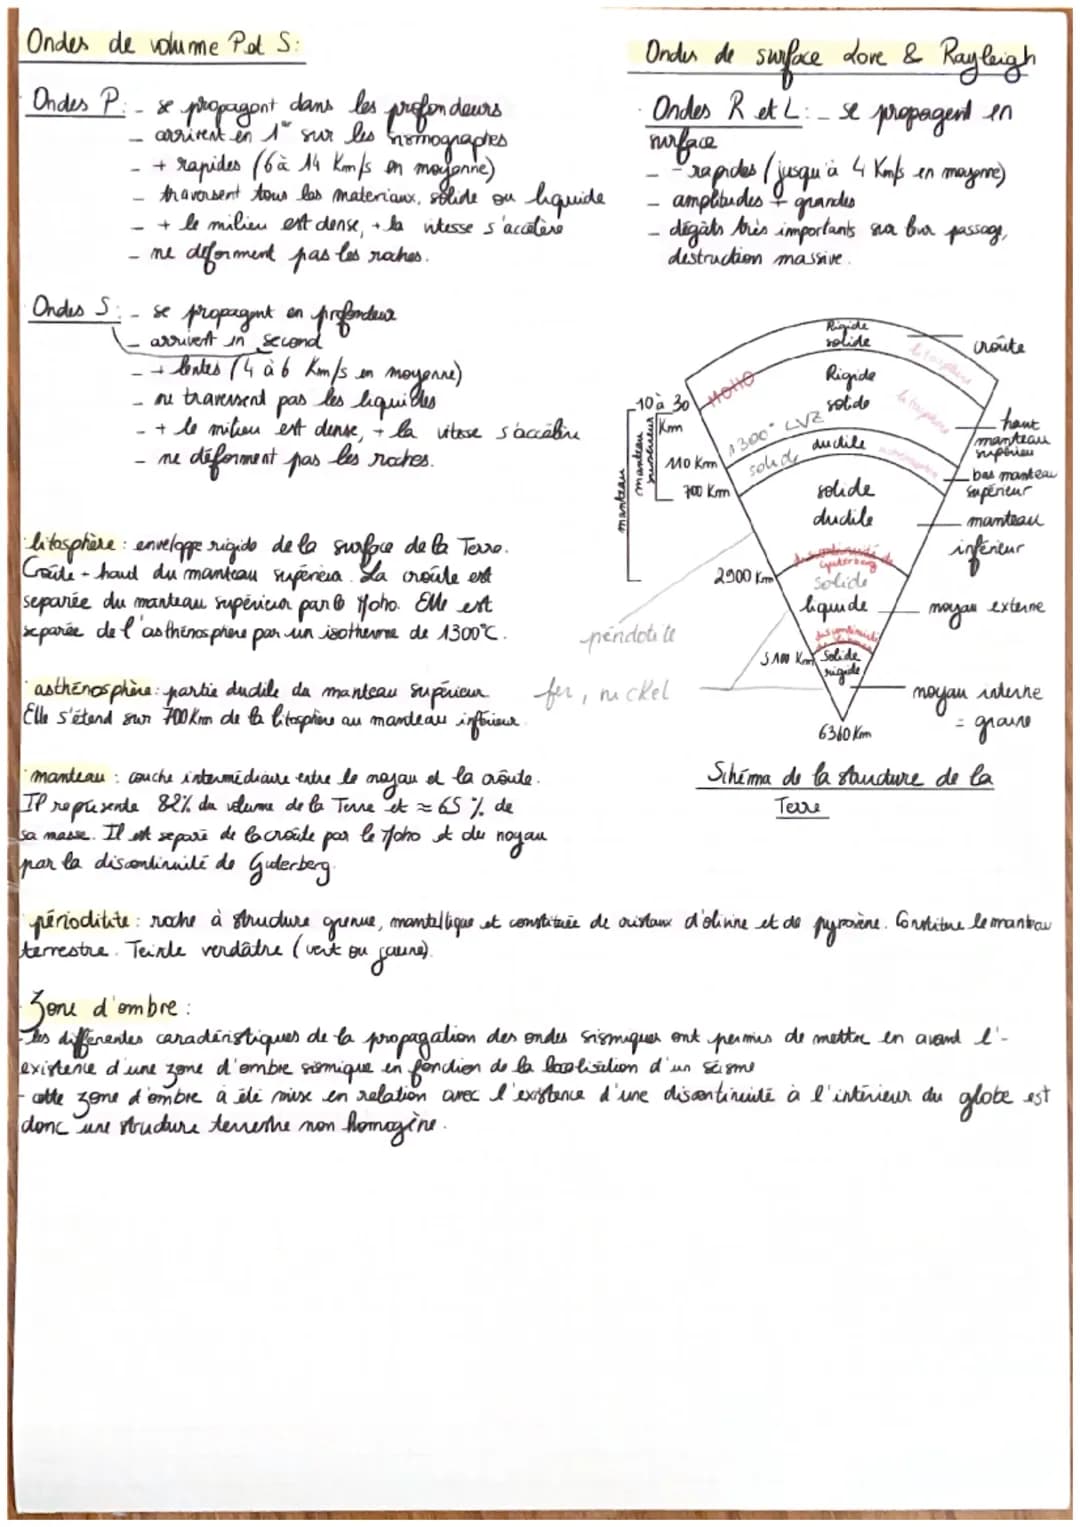 Ondes de volume P et S:
Ondes P: - se propagent dans les profondeurs
- arrivent en 1er sur les
- + rapides (6 à 14 Km/s en moyenne)
- traversent tous les materiaux, solide ou liquide
- + le milieu est dense, + la vitesse s'accélère
- ne déforment pas les roches.
Ondes S: - se propagent en profondeur
- arrivent en second
- + lentes (4 à 6 Km/s en moyenne)
- ne traversent pas les liquides
- + le milieu est dense, + la vitesse s'accélère
- ne déforment pas les roches.
Ondes de surface Love & Rayleigh
Ondes R et L: - se propagent en
surface
- - rapides (jusqu'à 4 Km/s en moyenne)
- amplitudes + grandes
- dégâts très importants sur leur passage,
destruction massive.
Rigide
solide
litosphère
croûte
MOHO
Rigide
solide
litosphère
10 à 30
Km
haut
manteau
supérieu
1300° LVZ
solide
ductile
asthénosphère
110 Km
700 Km
bas manteau
supérieur
manteau
manteau
supérieur
solide
ductile
manteau
inférieur
discontinuité de
Guterberg
2900 Km
solide
liquide
noyau externe
péridotite
5100 Km
Solide
rigide
fer, nickel
noyau interne
= graine
6360 Km
Schéma de la structure de la
Terre
litosphère: enveloppe rigide de la surface de la Terre.
Croûte + haut du manteau supérieur. La croûte est
separée du manteau supérieur par le Moho. Elle est
separée de l'asthénosphère par un isotherme de 1300°C.
asthénosphère: partie ductile du manteau supérieur
Elle s'étend sur 700Km de la litosphère au manteau inférieur.
manteau : couche intermédiaire entre le noyau et la croûte.
Il représente 82% du volume de la Terre et ≈ 65 % de
sa masse. Il est separé de la croûte par le Moho et du noyau
par la discontinuité de Guterberg.
périoditite: roche à structure grenue, mantellique et constituée de cristaux d'olivine et de pyroxène. Constitue le manteau
terrestre. Teinte verdâtre (vert ou jaune).
Zone d'ombre :
- les différentes caractéristiques de la propagation des ondes sismiques ont permis de mettre en avant l'-
existence d'une zone d'ombre sismique en fonction de la localisation d'un séisme
- cette zone d'ombre a été mise en relation avec l'existence d'une discontinuité à l'intérieur du globe est
donc une structure terrestre non homogène.